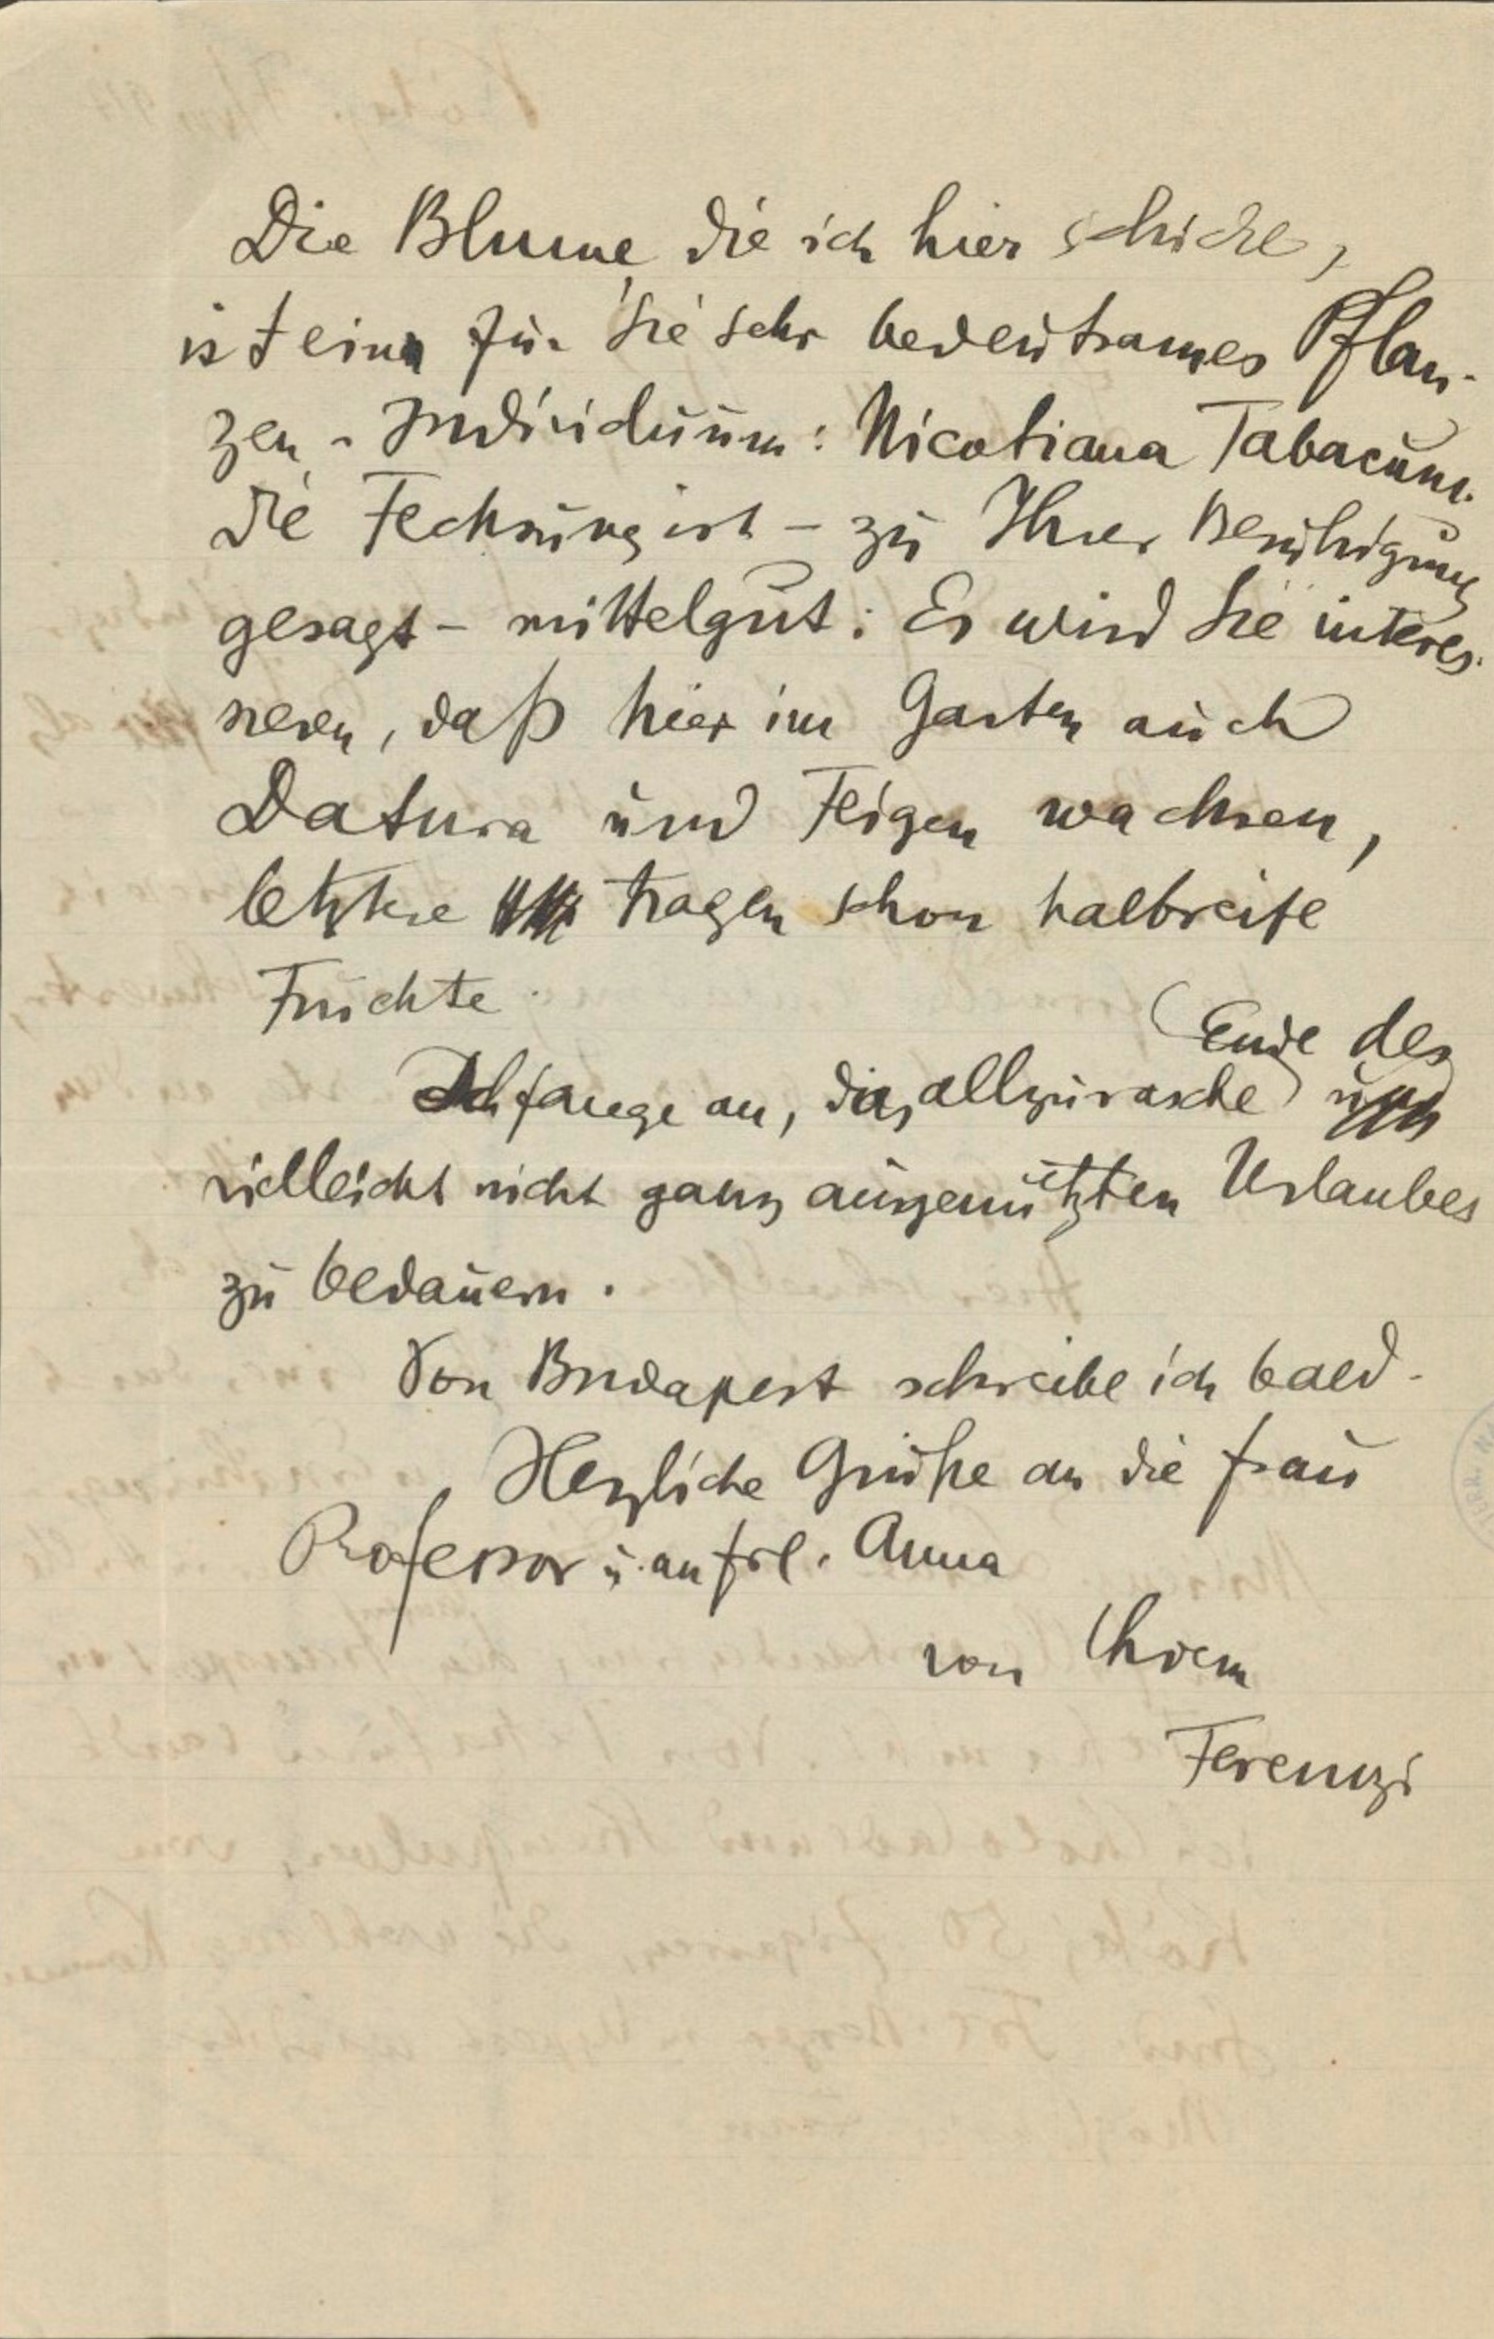 Die Blume, die ich hier schicke,
ist ein für Sie sehr bedeutsames Pflan-
zen-Individuum: Nicotiana Tabacum.
Die Fechsung ist – zu Ihrer Beruhigung
gesagt – mittelgut: Es wird Sie interes-
sieren, daß hier im Garten auch
Datura und Feigen wachsen,
letztere tragen schon halbreife
Früchte.
(Ende des
Ich fange an, das allzurasche)
vielleicht nicht ganz ausgenützten Urlaubes
zu bedauern.
Von Budapest schreibe ich bald.
Herzliche Grüße an die Frau
Professor u. an Frl. Anna
von Ihrem
Ferenczi